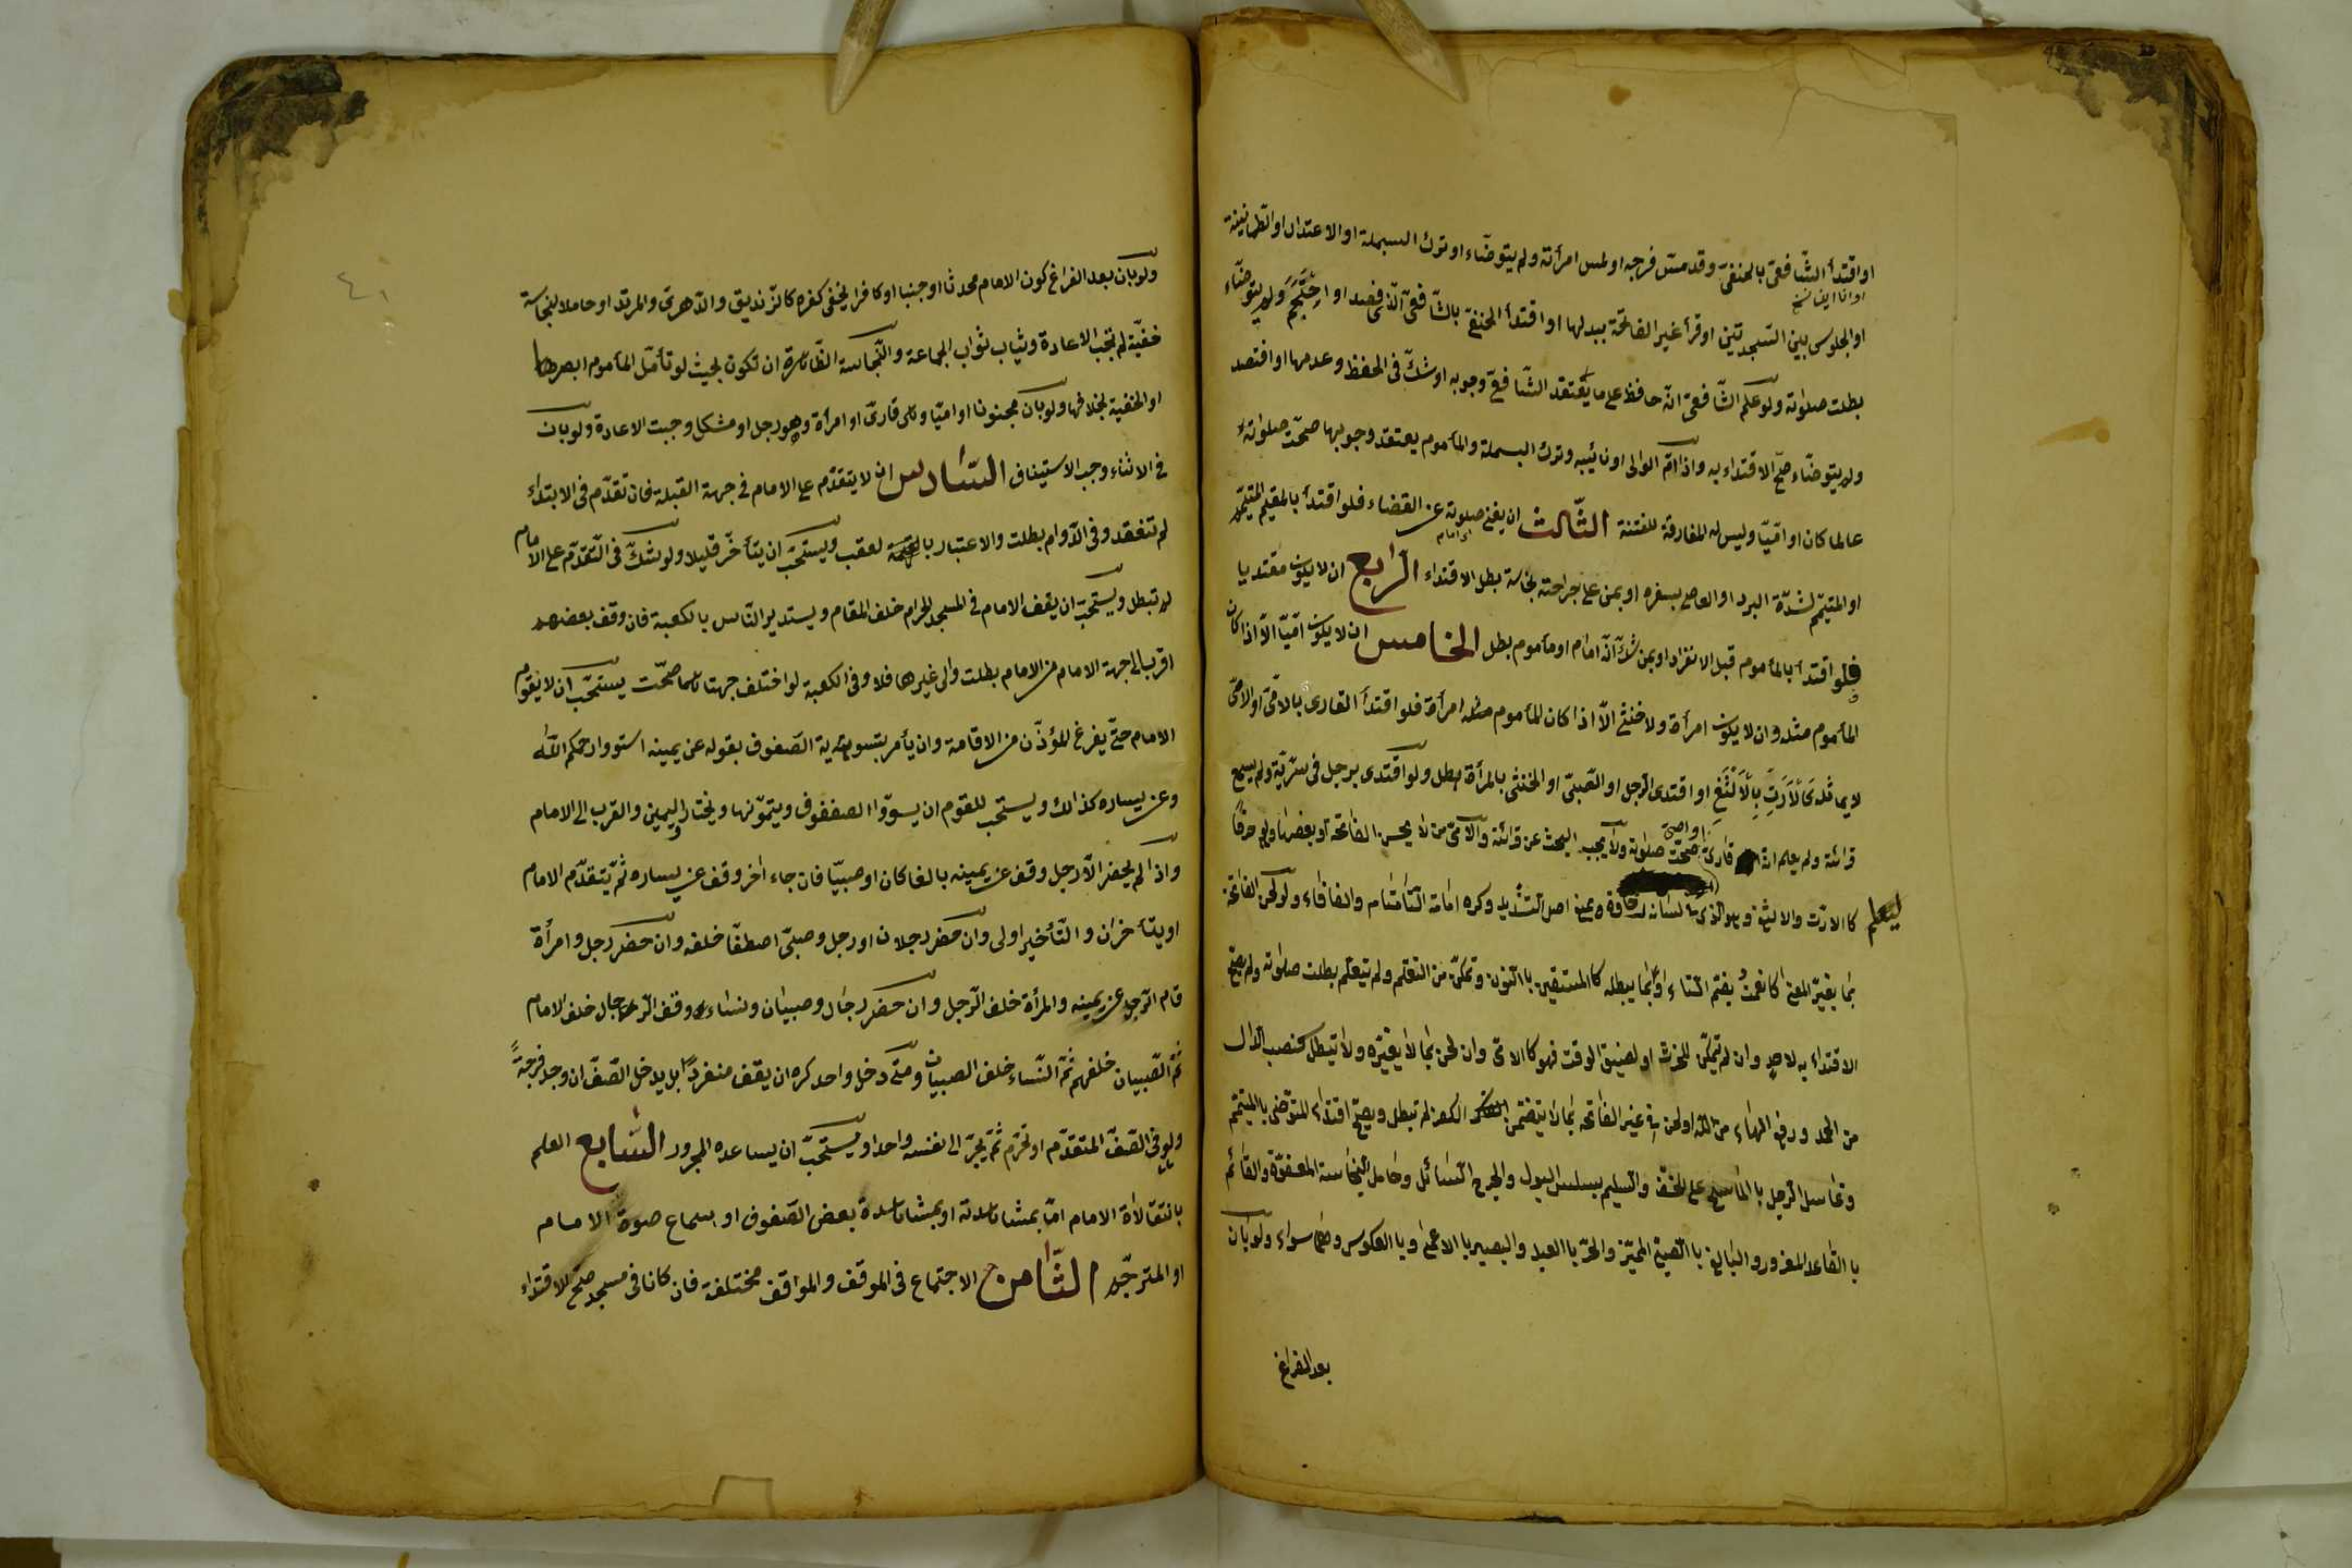 او اقتدأ الشّافعيّ بالحنفيّ وقد مسّ فرجه او لمس امرأته ولم يتوضّاء او ترك البسملة او الاعتدال او الطمانينة
او الجلوس بين السّجدتين او قرأ غير الفاتحة ببدلها او اقتدأ الحنفيّ بالشّافعيّ الّذي فصد او احتجم ولم يتوضّاء
بطلت صلوته ولو علم الشّافعيّ انّه حافظ على ما يعتقد الشّافعيّ وجوبه او شكّ في الحفظ وعدمها او افتصد
ولم يتوضّاء صحّ الاقتداء به واذا امّ الوالى او نائيبه وترك البسملة والمأموم يعتقد وجوبها صحّت صلوته
عالما كان او امّيّا وليس له المفارقة للفتنة الثّالث ان يغنى صلوته عن القضاء فلو اقتدأ بالمقيم المتيمّم
او المتيمّم لشدّة البرد او العاصى بسفره او بمن على جراحته نجاسة بطل الاقتداء الرّابع ان لا يكون مقتديا
فلو اقتدأ بالمأموم قبل الانفراد او بمن شكّ انّه امام او مأموم بطل الخامس ان لا يكون امّيّا الّا اذا كان
المأموم مثله وان لا يكون امرأة ولا خنثى الّا اذا كان المأموم مثله امرأة فلو اقتدأ القارى بالامّيّ او الامّيّ
لا يماثله كالأرتّ بالألثغ او اقتدى الرّجل او الصّبيّ او الخنثى بالمرأة بطل ولو اقتدى برجل في سرّيّة ولم يسمع
قرائته ولم يعلم انّه قارئ او امّيّ صحّت صلوته ولا يجب البحث عن قرائته والامّيّ من لا يحسن الفاتحة او بعضها ولو حرفًا
ليعلم كالارّت والالثغ وهو الذى لسانه رخاوة يمنع اصل التشديد وكره امامة التّامتام والفافاء ولو لحن الفاتحة
بما يغيّر المعنى كانعمتُ بضمّ التّاء او بما يبطله كالمستقين بالنّون وتمكّن من التعلّم ولم يتعلّم بطلت صلوته ولم يصحّ
الاقتداء به لاحدٍ وان لم يتمكّن للخرث او لضيق الوقت فهو كالامّيّ وان لحن بما لا يغيّره ولا يبطل كنصب الدّال
من الحمد ورفع الهاء من الله او لحن في غير الفاتحة بما لا يتضمّن الكفر لم تبطل ويصحّ اقتداء المتوضّى بالمتيمّم
وغاسل الرّجل بالماسح على الخفّ والسّليم بسلس البول والجرح السّائل وحامل النّجاسة المعفوّة والقائم
بالقاعد المعذور والبالغ بالصّبيّ المميّز والحرّ بالعبد والبصير بالاعمى وبالعكوس وهما سواء ولو بان
بعد الفراغ
ولو بان بعد الفراغ كون الامام محدثا او جنبا او كافرا يخفى كفره كالزّنديق والدّهرىّ والمرتدّ او حاملا لنجاسة
خفيّة لم تجب الاعادة ويثاب ثواب الجماعة والنّجاسة الظّاهرة ان تكون بحيث لو تأمّل المأموم ابصرها
او الخفية بخلافها ولو بان مجنونا او امّيّا وهى قارئ او امرأة وهو رجل او مشكل وجبت الاعادة ولو بان
في الاثناء وجب الاستيناف السّادس ان لا يتقدّم على الامام في جهة القبلة فان تقدّم في الابتداء
لم تنعقد وفى الدّوام بطلت والاعتبار بالعقب ويستحبّ ان يتأخّر قليلا ولو شكّ في التّقدّم على الامام
لم تبطل ويستحبّ ان يقف الامام في المسجد الحرام خلف المقام ويستدير النّاس بالكعبة فان وقف بعضهم
اقرب الى جهة الامام من الامام بطلت والى غيرها فلا وفى الكعبة لو اختلف جهتاهما صحّت يستحبّ ان لا يقوم
الامام حتّى يفرغ المؤذّن من الاقامة وان يأمر بتسوية الصّفوف بقوله عن يمينه استووا رحمكم الله
وعن يساره كذالك ويستحب للقوم ان يسوّوا الصففوف ويتمّونها ويختار اليمين والقرب الى الامام
واذا لم يحضر الّا رجل وقف عن يمينه بالغا كان او صبيّا فان جاء اخر وقف عن يساره ثمّ يتقدّم الامام
او يتأخران والتّأخير اولى وان حضر رجلان او رجل وصبىّ اصطفّا خلفه وان حضر رجل وامرأة
قام الرّجل عن يمينه والمرأة خلف الرّجل وان حضر رجال وصبيان ونساء وقف الرّجال خلف الامام
ثمّ الصّبيان خلفهم ثمّ النّساء خلف الصبيان ومتى دخل واحد كره ان يقف منفردًا بل يدخل الصّفّ ان وجد فرجةً
ولو في الصّفّ المتقدّم او تحرّم ثمّ يجرّ الى نفسه واحدا ويستحبّ ان يساعده المجرور السّابع العلم
بانتقالاة الامام امّا بمشاهدته او بمشاهدة بعض الصّفوف او بسماع صوة الامام
او المترجّم الثّامن الاجتماع في الموقف والمواقف مختلفة فان كانا في مسجد صحّ الاقتداء
٤١